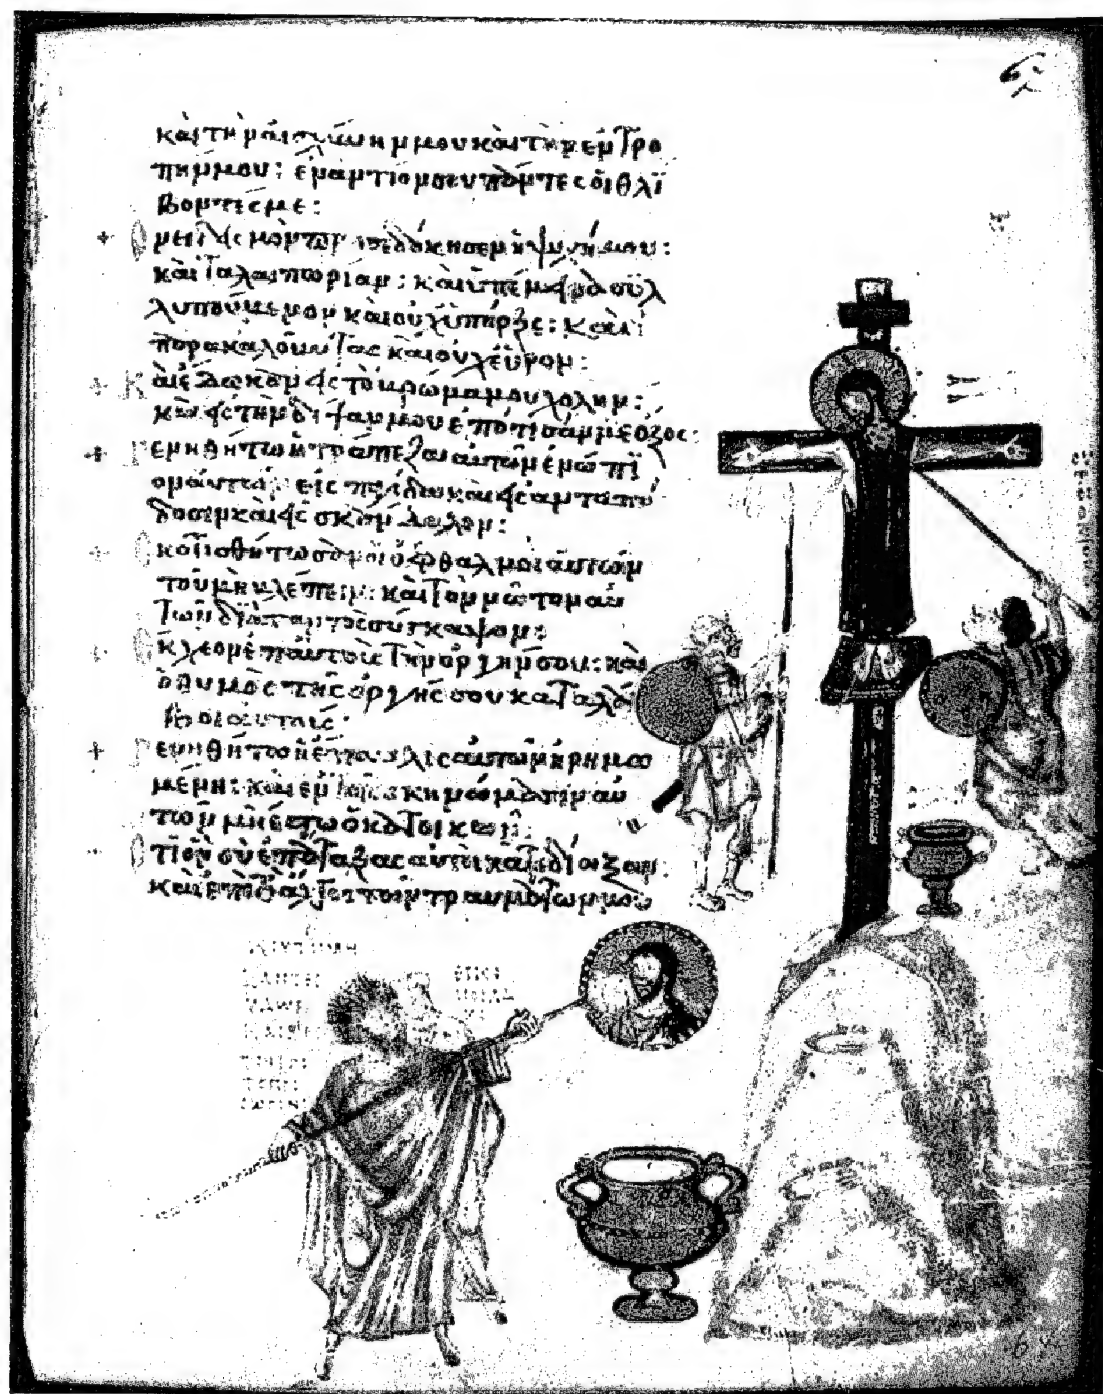 καὶ τὴν αἰσχύνην μου καὶ τὴν ἐντρο
πήν μου: ἐναντίον σου πάντες οἱ θλί
βοντές με:
+ Ὀνειδισμὸν προσεδόκησεν ἡ ψυχή μου:
καὶ ταλαιπωρίαν: καὶ ὑπέμεινα συλ
λυπούμενον καὶ οὐχ ὑπῆρξε: καὶ
παρακαλοῦντας καὶ οὐχ εὗρον:
+ Καὶ ἔδωκαν εἰς τὸ βρῶμα μου χολὴν:
καὶ εἰς τὴν δίψαν μου ἐπότισάν με ὄξος:
+ Γενηθήτω ἡ τράπεζα αὐτῶν ἐνώπι
ον αὐτῶν εἰς παγίδα καὶ εἰς ἀνταπό
δοσιν καὶ εἰς σκάνδαλον:
+ Σκοτισθήτωσαν οἱ ὀφθαλμοὶ αὐτῶν
τοῦ μὴ βλέπειν: καὶ τὸν νῶτον αὐ
τῶν διὰ παντὸς σύγκαμψον:
+ Ἔκχεον ἐπ αὐτοὺς τὴν ὀργήν σου: καὶ
ὁ θυμὸς τῆς ὀργῆς σου καταλά
βοι αὐτούς:
+ Γενηθήτω ἡ ἔπαυλις αὐτῶν ἠρημω
μένη: καὶ ἐν τοῖς σκηνώμασιν αὐ
τῶν μὴ ἔστω ὁ κατοικῶν:
+ Ὅτι ὃν σὺ ἐπάταξας αὐτοὶ κατεδίωξαν:
καὶ ἐπὶ τὸ ἄλγος τῶν τραυμάτων μου